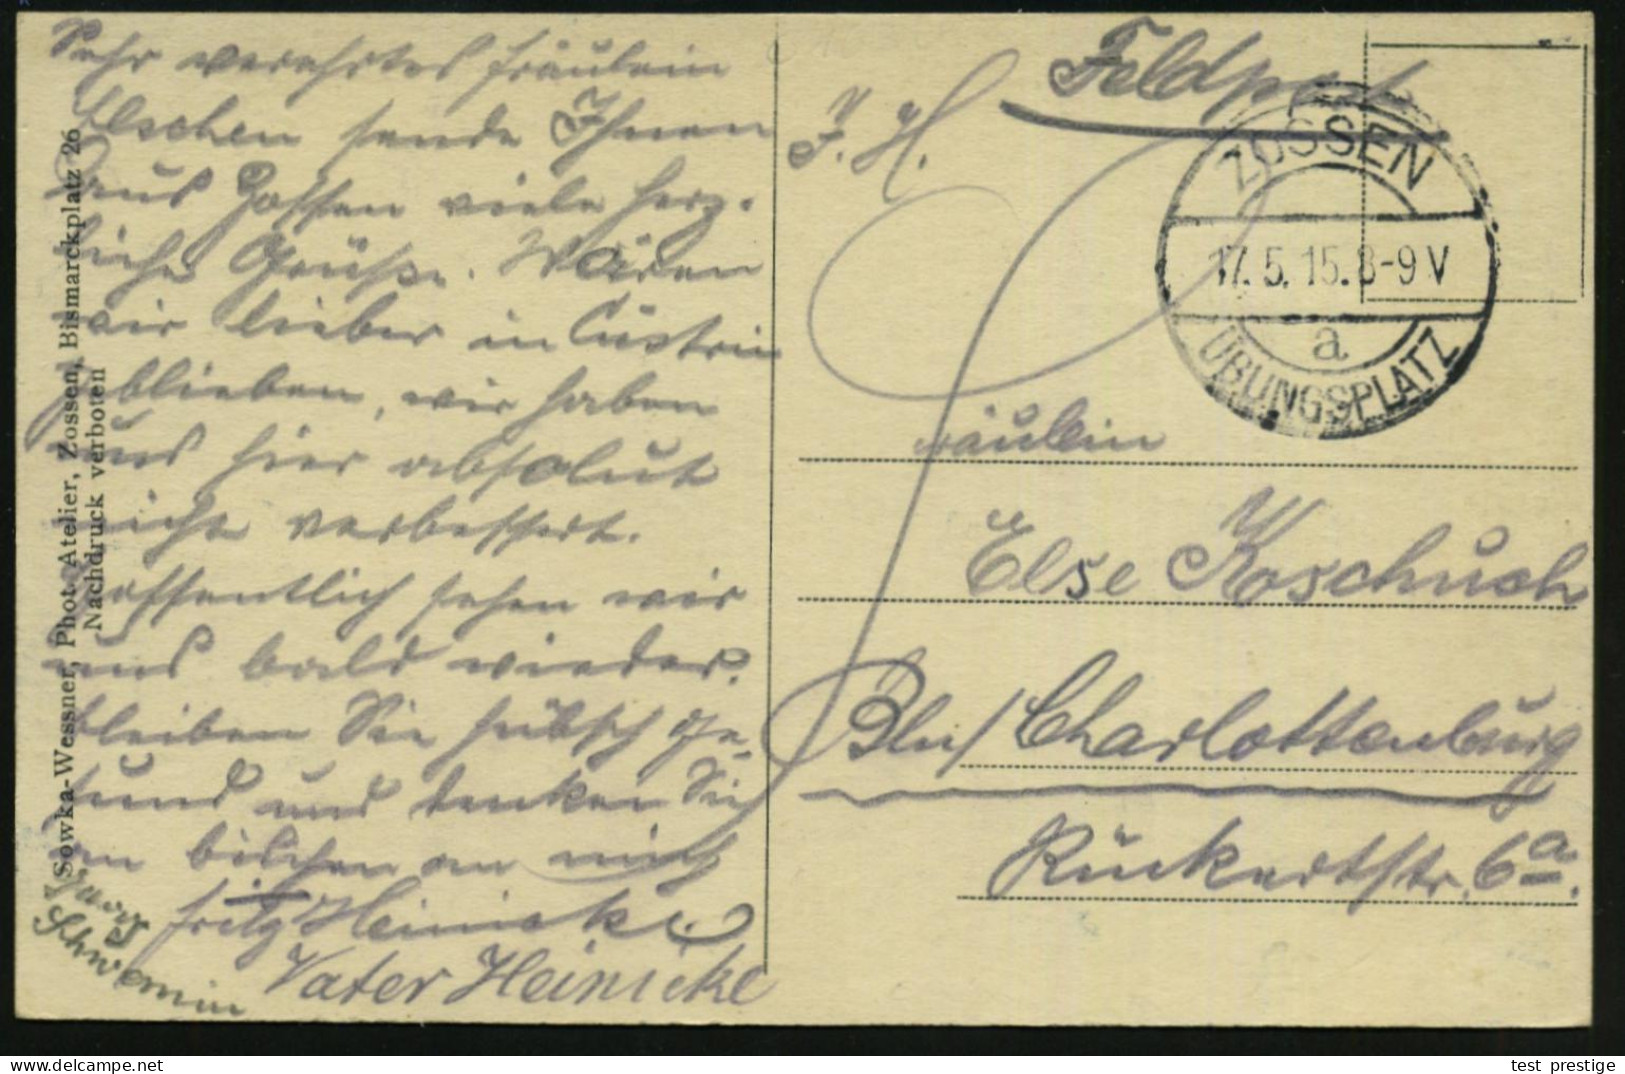 Sehr verehrtes Fräulein
Elschen sende Ihnen
aus Zossen viele herz-
liche Grüße. Wären
wir lieber in Cüstrin
geblieben, wir haben
uns hier absolut
nicht verbessert.
Hoffentlich sehen wir
uns bald wieder.
Bleiben Sie hübsch ge-
sund und denken Sie
an bischen an mich
Fritz Heinicke.
Vater Heinicke
Schwerin
Sowka-Wessner, Phot. Atelier, Zossen, Bismarckplatz 26
Nachdruck verboten
Feldpost
F. H.
ZOSSEN
17.5.15.8-9V
a
ÜBUNGSPLATZ
Fräulein
Else Koschuch
Bln/Charlottenburg
Rückertstr. 6a.
test prestige